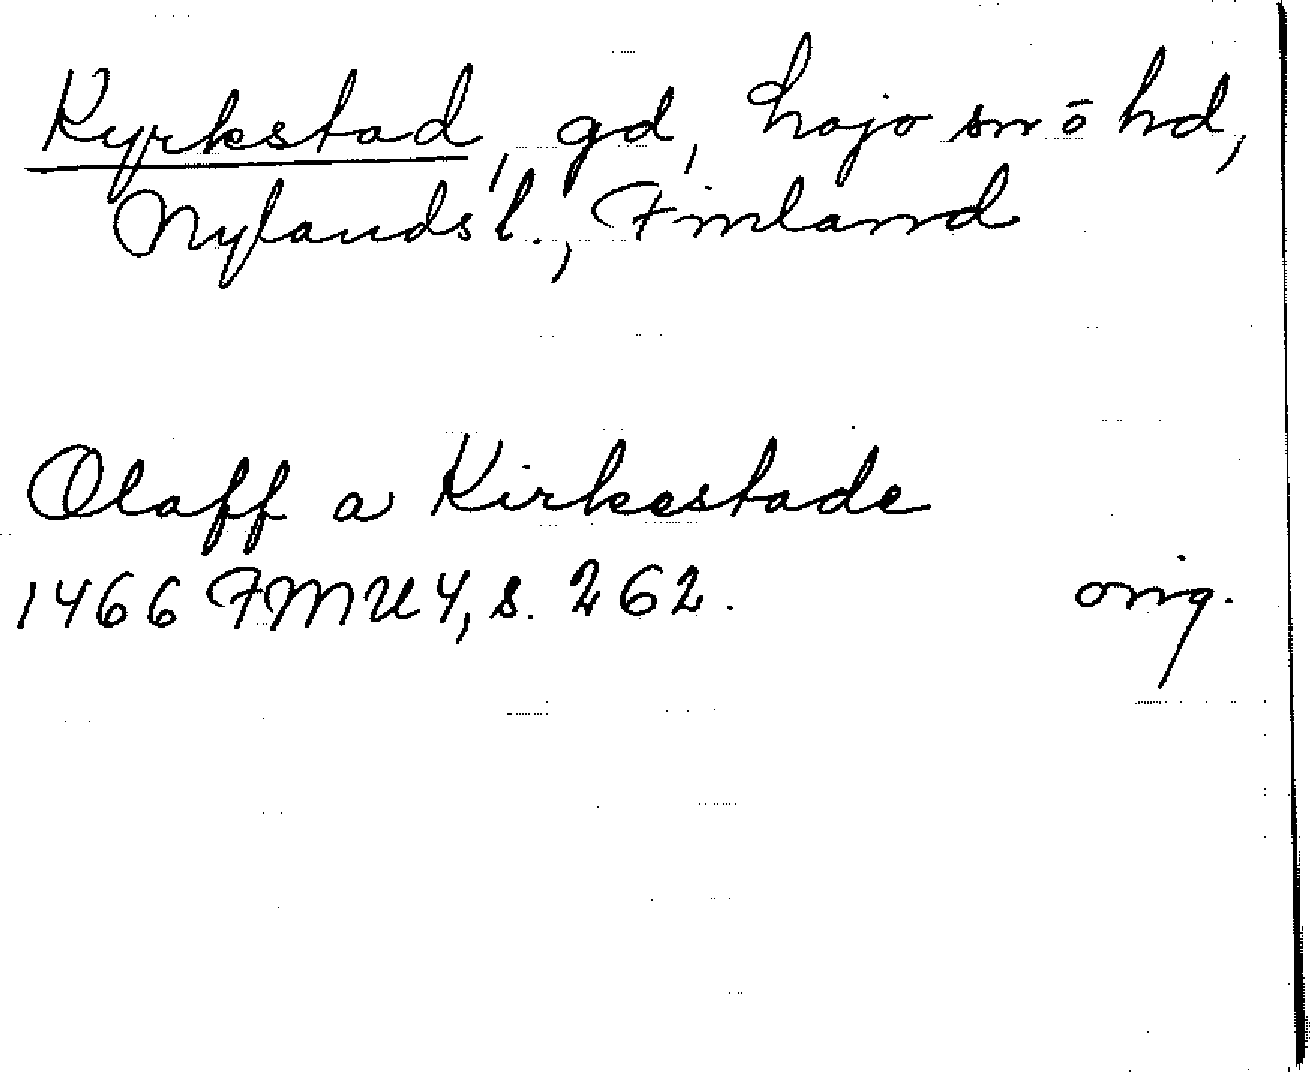 Kyrkstad, gd, Lojo sn o hd,
Nylands l., Finland
Olaff a Kirkestade
1466 FMU 4, s. 262. orig.